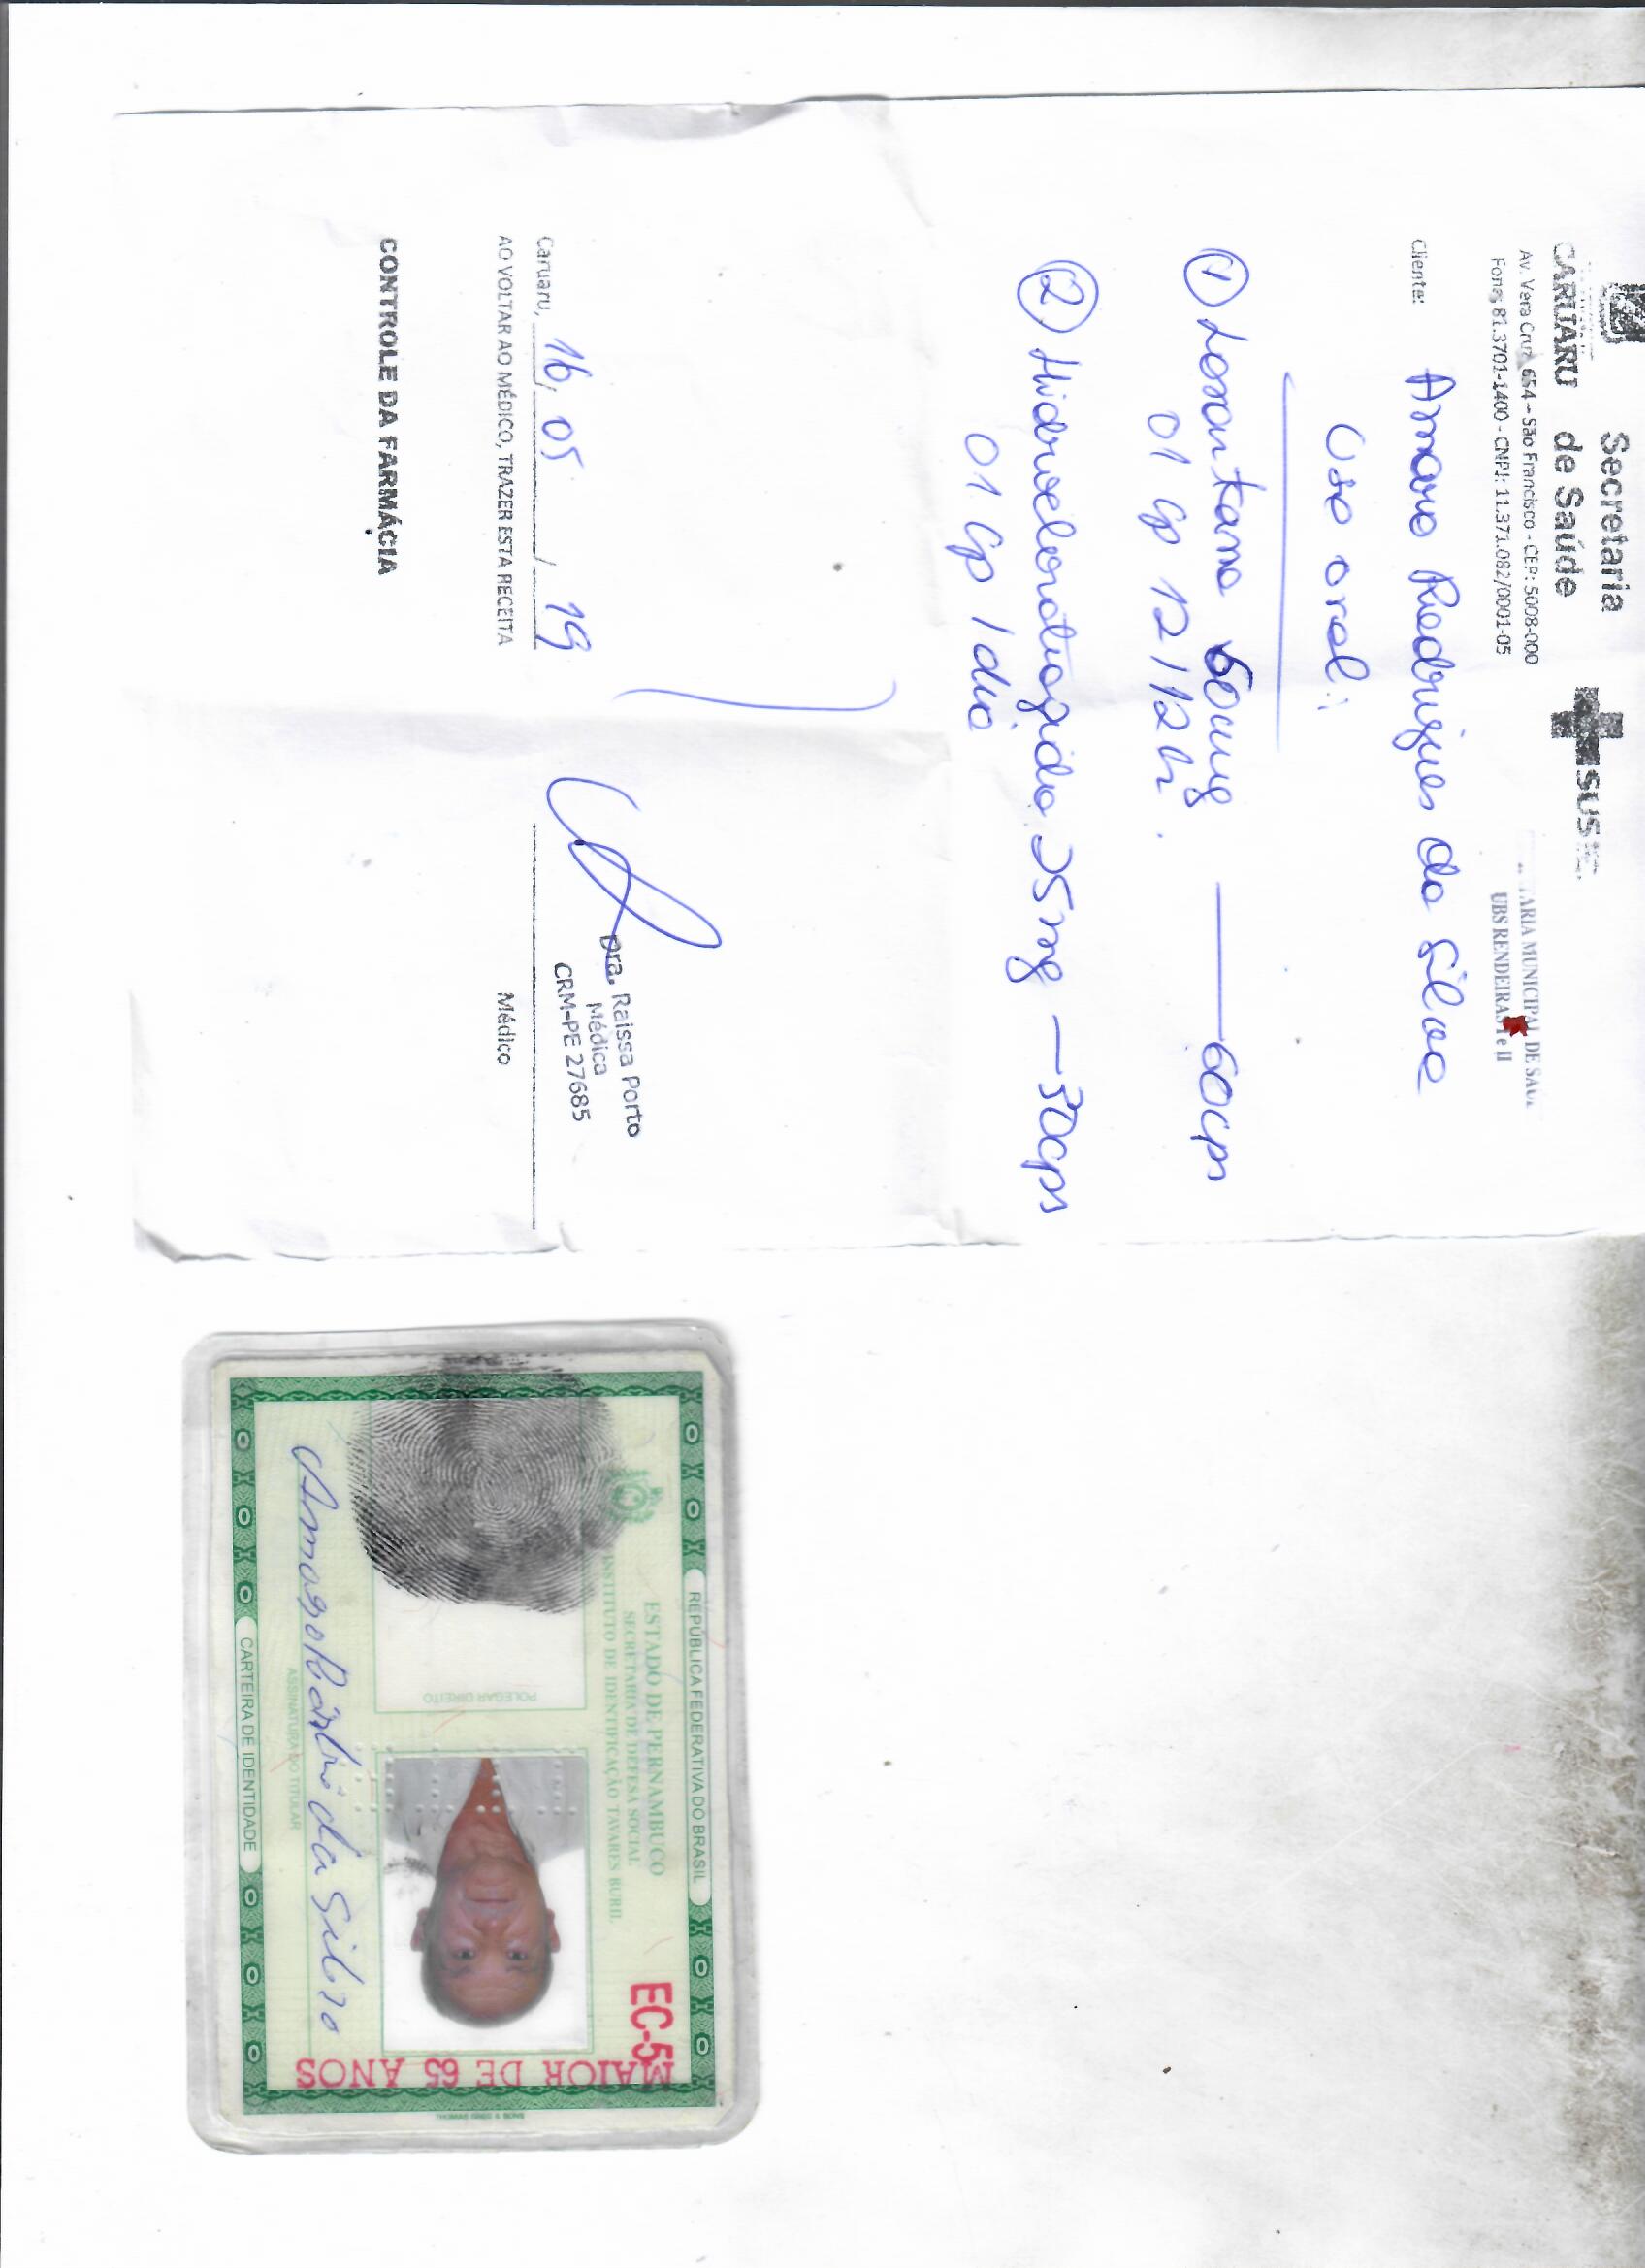 Secretaria
CARUARU de Saúde
SUS
Av. Vera Cruz, 654 - São Francisco - CEP: 5008-000
Fone: 81.3701-1400 - CNPJ: 11.371.082/0001-05
ARIA MUNICIPAL DE SAÚDE
UBS RENDEIRAS I e II
Cliente: Amaro Rodrigues da Silva
Uso oral:
① Losartana 50mg — 60cps
01 cp 12/12h.
② Hidroclorotiazida 25mg — 30cps
01 cp /dia
Dra. Raissa Porto
Médica
CRM-PE 27685
Caruaru, 16/05/19
Médico
AO VOLTAR AO MÉDICO, TRAZER ESTA RECEITA
CONTROLE DA FARMÁCIA
REPÚBLICA FEDERATIVA DO BRASIL
ESTADO DE PERNAMBUCO
SECRETARIA DE DEFESA SOCIAL
INSTITUTO DE IDENTIFICAÇÃO TAVARES BURIL
EC-5
MAIOR DE 65 ANOS
POLEGAR DIREITO
da Silva
ASSINATURA DO TITULAR
CARTEIRA DE IDENTIDADE
THOMAS GREG & SONS